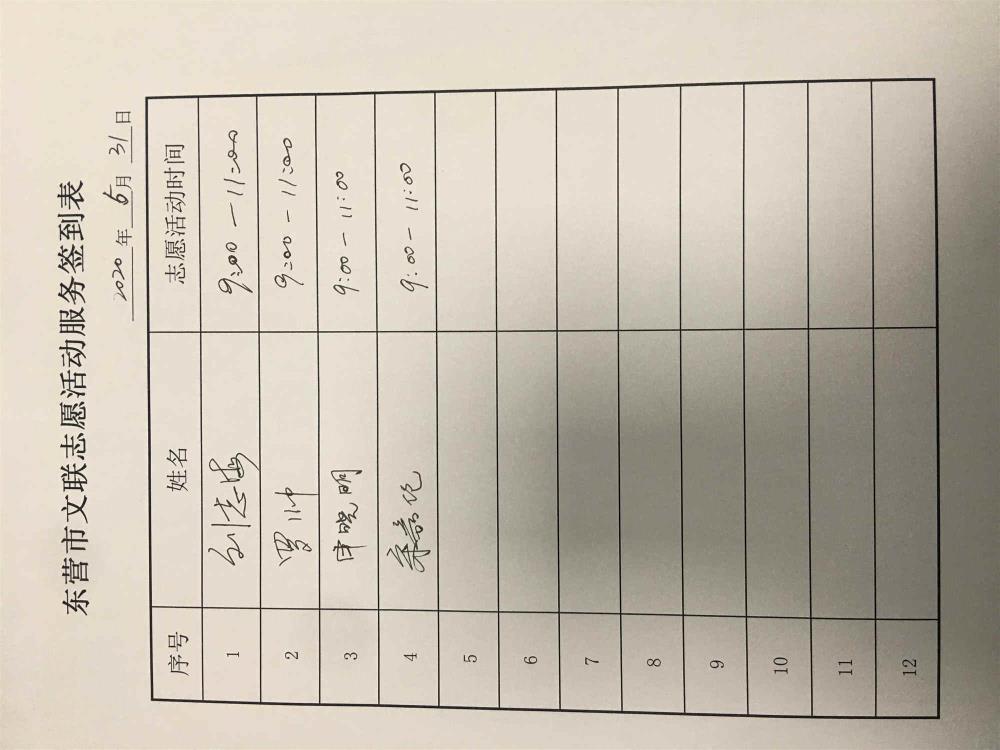 东营市文联志愿活动服务签到表
2020 年 6 月 31 日
序号 姓名 志愿活动时间
1 刘志海 9:00 — 11:00
2 罗帅 9:00 — 11:00
3 晓明 9:00 - 11:00
4 9:00 - 11:00
5
6
7
8
9
10
11
12